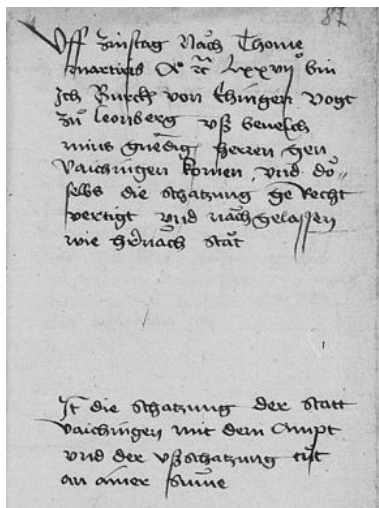 87
Uff zinstag Nach Thome
martiris Ao rc Lxxvij bin
Ich Burck von Ehingen Vogt
zů leonberg uß bevelch
mins gnedig herren gen
Vaichingen komen vnd do
selbs die schatzung ge Recht
vertigt vnd nachgelassen
wie hernach stat
It die schatzung der statt
Vaichingen mit dem Ampt
vnd der vßschatzung tůt
an ainer Sum̄e